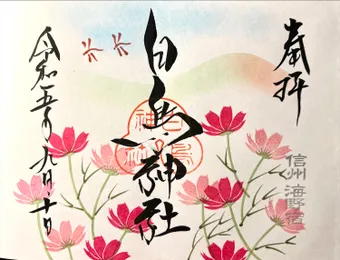 奉拝
信州 海野宿
白鳥神社
令和五年九月十日